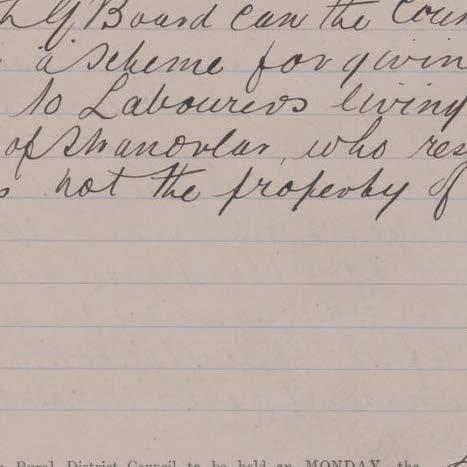 L G Board can the Coun
a scheme for givin
to Labourers living
of Shanovlar, who res
not the property of
Rural District Council to be held on MONDAY, the